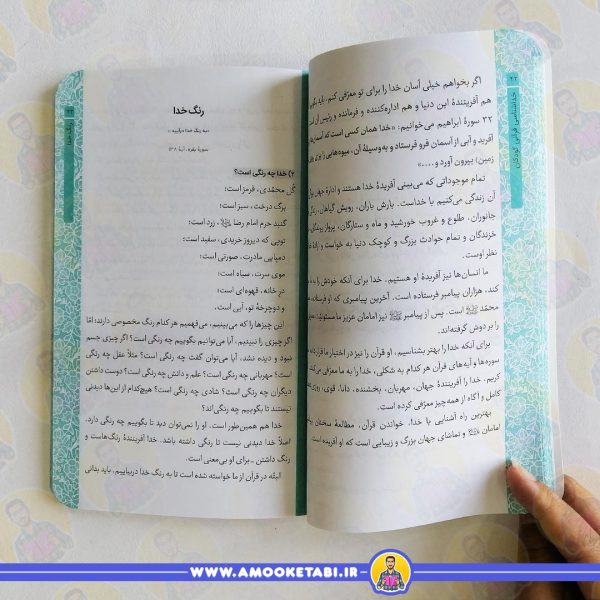 خداشناسی قرآنی کودکان
اگر بخواهم خیلی آسان خدا را برای تو معرّفی کنم، باید بگویم
هم آفرینندهٔ این دنیا و هم اداره‌کننده و فرمانده و رئیس آن
۳۲ سورهٔ ابراهیم می‌خوانیم: «خدا همان کسی است که آسمان‌ها
آفرید و آبی از آسمان فرو فرستاد و به‌وسیلهٔ آن، میوه‌هایی را برای
زمین) بیرون آورد و....»
تمام موجوداتی که می‌بینی آفریدهٔ خدا هستند و ادارهٔ جهان
آن زندگی می‌کنیم با خداست. بارش باران، رویش گیاهان،
جانوران، طلوع و غروب خورشید و ماه و ستارگان، پرواز
خزندگان و تمام حوادث بزرگ و کوچک دنیا به خواست و
نظر اوست.
ما انسان‌ها نیز آفریدهٔ او هستیم. خدا برای آنکه خودش را به
کند، هزاران پیامبر فرستاده است. آخرین پیامبری که او فرستاده،
محمّد ﷺ است. پس از پیامبر ﷺ نیز امامان عزیز ما مسئولیّت
را بر دوش گرفته‌اند.
برای آنکه خدا را بهتر بشناسیم، او قرآن را نیز در اختیار ما قرار داده
سوره‌ها و آیه‌های قرآن هر کدام به شکلی، خدا را به ما معرّفی
کریم، خدا را آفرینندهٔ جهان، مهربان، بخشنده، دانا، قوی،
کامل و آگاه از همه‌چیز معرّفی کرده است.
بهترین راه آشنایی با خدا، خواندن قرآن، مطالعهٔ سخنان
امامان و تماشای جهان بزرگ و زیبایی است که او آفریده است.
رنگ خدا
«به رنگ خدا درآییم.»
سورهٔ بقره، آیهٔ ۱۳۸
۲) خدا چه رنگی است؟
گُل محمّدی، قرمز است؛
برگ درخت، سبز است؛
گنبد حرم امام رضا، زرد است؛
توپی که دیروز خریدی، سفید است؛
دمپایی مادرت، صورتی است؛
موی سرت، سیاه است؛
درِ خانه، قهوه‌ای است؛
و دوچرخهٔ تو، آبی است.
این چیزها را که می‌بینیم، می‌فهمیم هر کدام رنگ مخصوصی دارند؛ امّا
اگر چیزی را نبینیم، آیا می‌توانیم بگوییم چه رنگی است؟ اگر چیزی جسم
نبود و دیده نشد، آیا می‌توان گفت چه رنگی است؟ مثلاً عقل چه رنگی
است؟ مهربانی چه رنگی است؟ علم و دانش چه رنگی است؟ دوست داشتن
دیگران چه رنگی است؟ شادی چه رنگی است؟ هیچ‌کدام از این‌ها دیدنی
نیستند تا بگوییم چه رنگی‌اند؟
خدا هم همین‌طور است. او را نمی‌توان دید تا بگوییم چه رنگی دارد.
اصلاً خدا دیدنی نیست تا رنگی داشته باشد. خدا آفرینندهٔ رنگ‌هاست و
رنگ داشتن ـ برای او بی‌معنی است.
البتّه در قرآن از ما خواسته شده است تا به رنگ خدا دربیاییم. باید بدانی
WWW.AMOOKETABI.IR